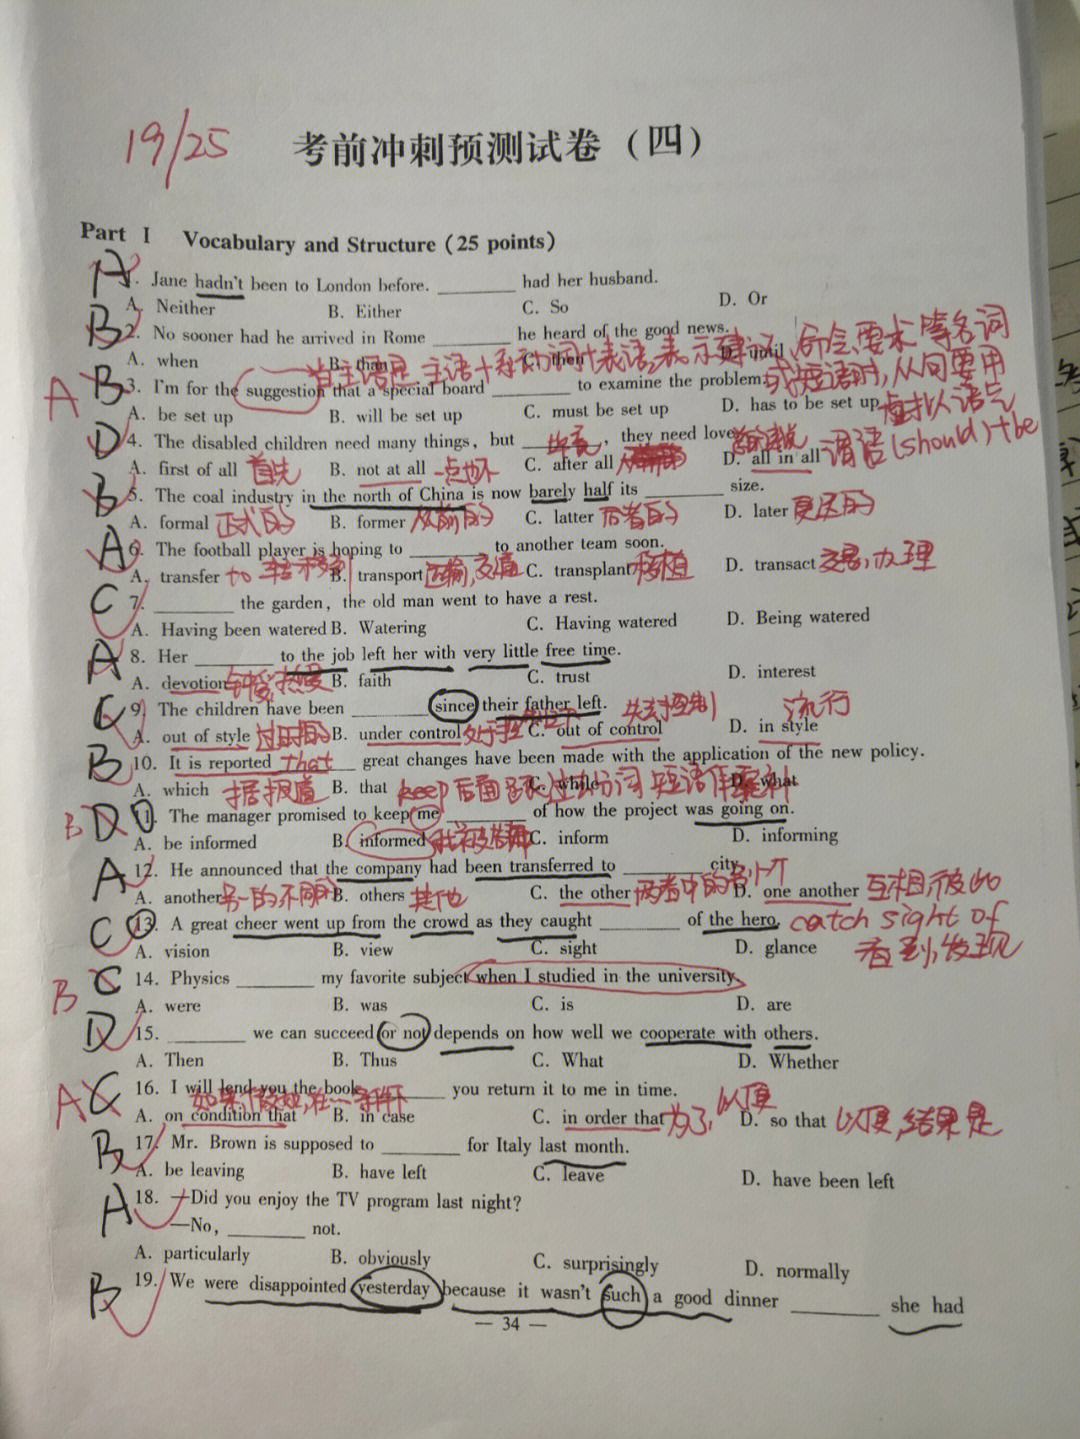 19/25
考前冲刺预测试卷（四）
Part I Vocabulary and Structure (25 points)
A 1. Jane hadn't been to London before. ________ had her husband.
A. Neither B. Either C. So D. Or
B 2. No sooner had he arrived in Rome ________ he heard of the good news.
A. when B. than C. then D. until
当主语是 主语+系动词+表语,表示建议、命令、要求 等名词
A B 3. I'm for the suggestion that a special board ________ to examine the problem.
或短语时,从句要用
A. be set up B. will be set up C. must be set up D. has to be set up
虚拟语气
D 4. The disabled children need many things, but ________, they need love
谓语(should)+be
A. first of all 首先 B. not at all 一点也不 C. after all D. all in all
B 5. The coal industry in the north of China is now barely half its ________ size.
A. formal 正式的 B. former 从前的 C. latter 后者的 D. later 更迟的
A 6. The football player is hoping to ________ to another team soon.
A. transfer to 转移到 B. transport 运输, C. transplant 移植 D. transact 交易,办理
C 7. ________ the garden, the old man went to have a rest.
A. Having been watered B. Watering C. Having watered D. Being watered
A 8. Her ________ to the job left her with very little free time.
A. devotion 钟爱,热爱 B. faith C. trust D. interest
C 9. The children have been ________ since their father left. 失去控制 流行
A. out of style 过时的 B. under control C. out of control D. in style
B 10. It is reported that ________ great changes have been made with the application of the new policy.
A. which 据报道 B. that C. while D. what
keep 后面跟过去分词 短语作
B D 11. The manager promised to keep me ________ of how the project was going on.
A. be informed B. informed C. inform D. informing
A 12. He announced that the company had been transferred to ________ city.
A. another 另一的不同的 B. others 其他 C. the other 两者中的另一个 D. one another 互相,彼此
C 13. A great cheer went up from the crowd as they caught ________ of the hero. catch sight of
A. vision B. view C. sight D. glance 看到,发现
B C 14. Physics ________ my favorite subject when I studied in the university.
A. were B. was C. is D. are
D 15. ________ we can succeed or not depends on how well we cooperate with others.
A. Then B. Thus C. What D. Whether
A C 16. I will lend you the book ________ you return it to me in time.
A. on condition that B. in case C. in order that 为了,以便 D. so that 以便,结果是
B 17. Mr. Brown is supposed to ________ for Italy last month.
A. be leaving B. have left C. leave D. have been left
A 18. —Did you enjoy the TV program last night?
—No, ________ not.
A. particularly B. obviously C. surprisingly D. normally
B 19. We were disappointed yesterday because it wasn't such a good dinner ________ she had
— 34 —